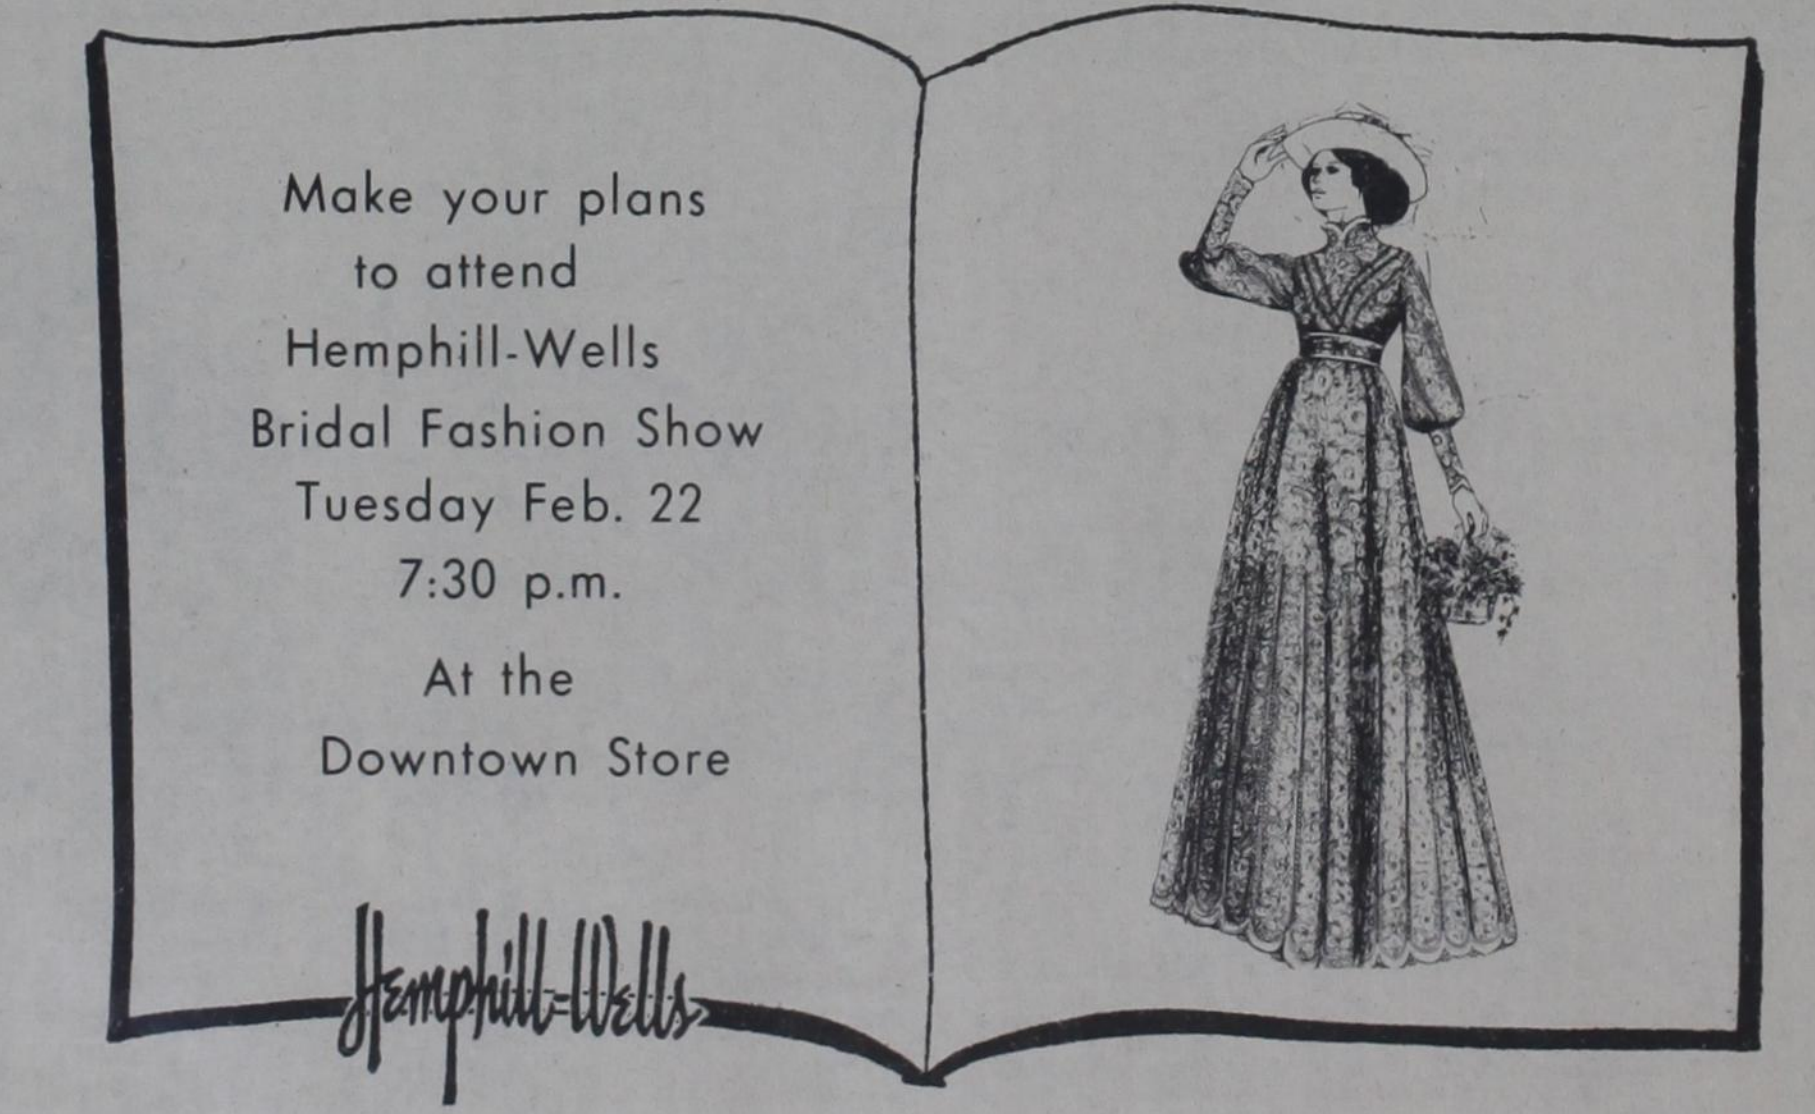 Make your plans
to attend
Hemphill-Wells
Bridal Fashion Show
Tuesday Feb. 22
7:30 p.m.
At the
Downtown Store
Hemphill-Wells